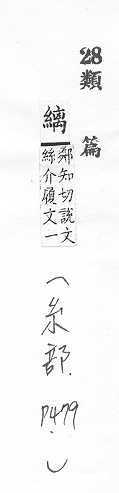 28 類篇
縭
鄰知切說文
絲介履文一
（糸部 P479.）